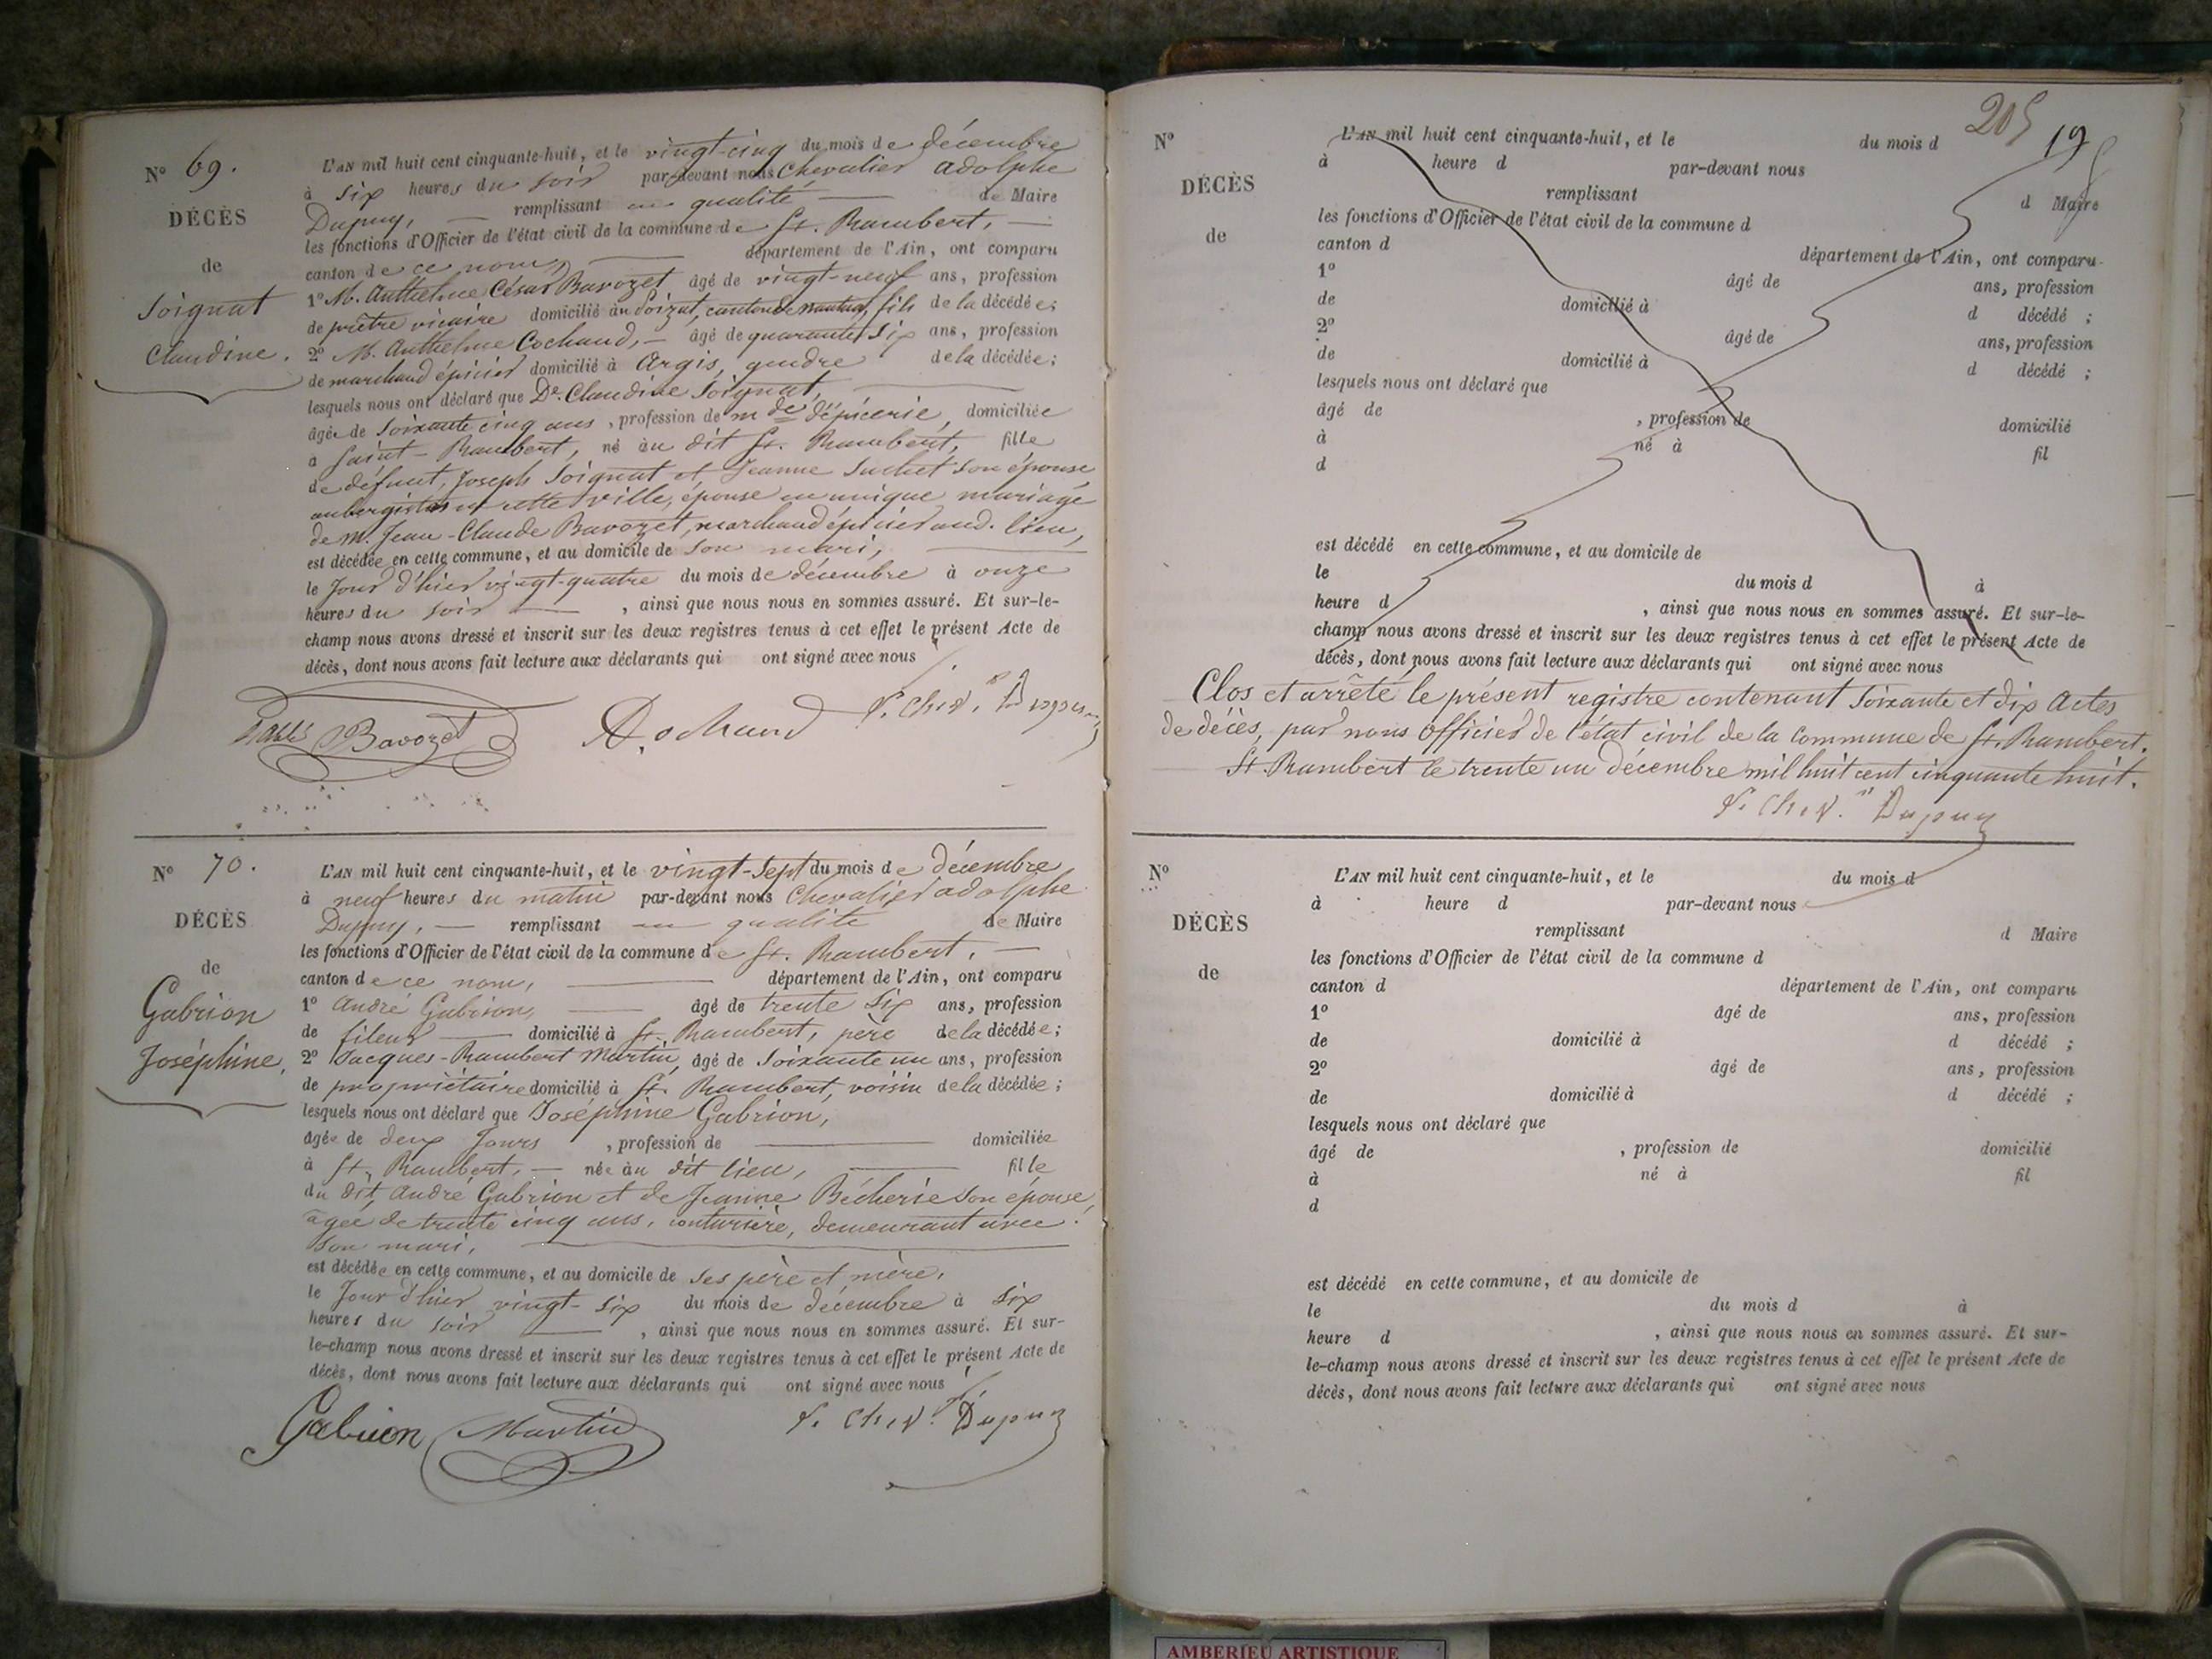 Nº 69.
DÉCÈS
de
Soignat
Claudine.
L'AN mil huit cent cinquante-huit, et le vingt-cinq du mois de décembre
à six heures du soir par-devant nous Chevalier Adolphe
Dupuy, remplissant en qualité de Maire
les fonctions d'Officier de l'état civil de la commune de St. Rambert,
canton de ce nom, département de l'Ain, ont comparu
1º M. Anthelme César Bavozet âgé de vingt-neuf ans, profession
de prêtre vicaire domicilié au Poizat, canton de nantua, fils de la décédée;
2º M. Anthelme Cochand, âgé de quarante six ans, profession
de marchand épicier domicilié à Argis, gendre de la décédée;
lesquels nous ont déclaré que De. Claudine Soignat,
âgée de soixante cinq ans, profession de mde d'épicerie, domiciliée
a Saint-Rambert, né au dit St. Rambert, fille
de défunt, Joseph Soignat et Jeanne Suchet son épouse
aubergistes en cette ville, épouse en unique mariage
de M. Jean-Claude Bavozet, marchand épicier aud. lieu,
est décédée en cette commune, et au domicile de son mari,
le Jour d'hier vingt-quatre du mois de décembre à onze
heures du soir, ainsi que nous nous en sommes assuré. Et sur-le-
champ nous avons dressé et inscrit sur les deux registres tenus à cet effet le présent Acte de
décès, dont nous avons fait lecture aux déclarants qui ont signé avec nous
Bavozet Cochand Chev. Dupuy
Nº 70.
DÉCÈS
de
Gabrion
Joséphine,
L'AN mil huit cent cinquante-huit, et le vingt-sept du mois de décembre
à neuf heures du matin par-devant nous Chevalier adolphe
Dupuy, remplissant en qualité de Maire
les fonctions d'Officier de l'état civil de la commune de St. Rambert,
canton de ce nom, département de l'Ain, ont comparu
1º André Gabrion, âgé de trente six ans, profession
de fileur domicilié à St. Rambert, père de la décédée;
2º Jacques-Rambert Martin, âgé de soixante un ans, profession
de propriétaire domicilié à St. Rambert, voisin de la décédée;
lesquels nous ont déclaré que Joséphine Gabrion,
âgée de deux Jours, profession de domiciliée
à St. Rambert, née au dit lieu, fille
du dit, André Gabrion et de Jeanne Bécherie son épouse,
âgée de trente cinq ans, couturière, demeurant avec
son mari,
est décédée en cette commune, et au domicile de ses père et mère,
le Jour d'hier vingt-six du mois de décembre à six
heures du soir, ainsi que nous nous en sommes assuré. Et sur-
le-champ nous avons dressé et inscrit sur les deux registres tenus à cet effet le présent Acte de
décès, dont nous avons fait lecture aux déclarants qui ont signé avec nous
Gabrion Martin Chev. Dupuy
205
19
Nº
DÉCÈS
de
L'AN mil huit cent cinquante-huit, et le du mois d
à heure d par-devant nous
remplissant d Maire
les fonctions d'Officier de l'état civil de la commune d
canton d département de l'Ain, ont comparu
1º âgé de ans, profession
de domicilié à d décédé ;
2º âgé de ans, profession
de domicilié à d décédé ;
lesquels nous ont déclaré que
âgé de , profession de domicilié
à né à fil
d
est décédé en cette commune, et au domicile de
le du mois d à
heure d , ainsi que nous nous en sommes assuré. Et sur-le-
champ nous avons dressé et inscrit sur les deux registres tenus à cet effet le présent Acte de
décès, dont nous avons fait lecture aux déclarants qui ont signé avec nous
Clos et arrêté le présent registre contenant soixante et dix Actes
de décès, par nous officier de l'état civil de la commune de St. Rambert.
St. Rambert le trente un décembre mil huit cent cinquante huit.
Chev. Dupuy
Nº
DÉCÈS
de
L'AN mil huit cent cinquante-huit, et le du mois d
à heure d par-devant nous
remplissant d Maire
les fonctions d'Officier de l'état civil de la commune d
canton d département de l'Ain, ont comparu
1º âgé de ans, profession
de domicilié à d décédé ;
2º âgé de ans, profession
de domicilié à d décédé ;
lesquels nous ont déclaré que
âgé de , profession de domicilié
à né à fil
d
est décédé en cette commune, et au domicile de
le du mois d à
heure d , ainsi que nous nous en sommes assuré. Et sur-
le-champ nous avons dressé et inscrit sur les deux registres tenus à cet effet le présent Acte de
décès, dont nous avons fait lecture aux déclarants qui ont signé avec nous
AMBERIEU ARTISTIQUE